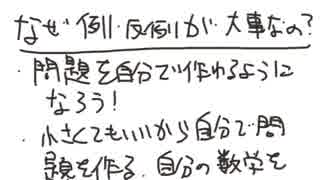 なぜ例・反例が大事なの?
・問題を自分で作れるように
なろう!
・小さくてもいいから自分で問
題を作る、自分の数学を